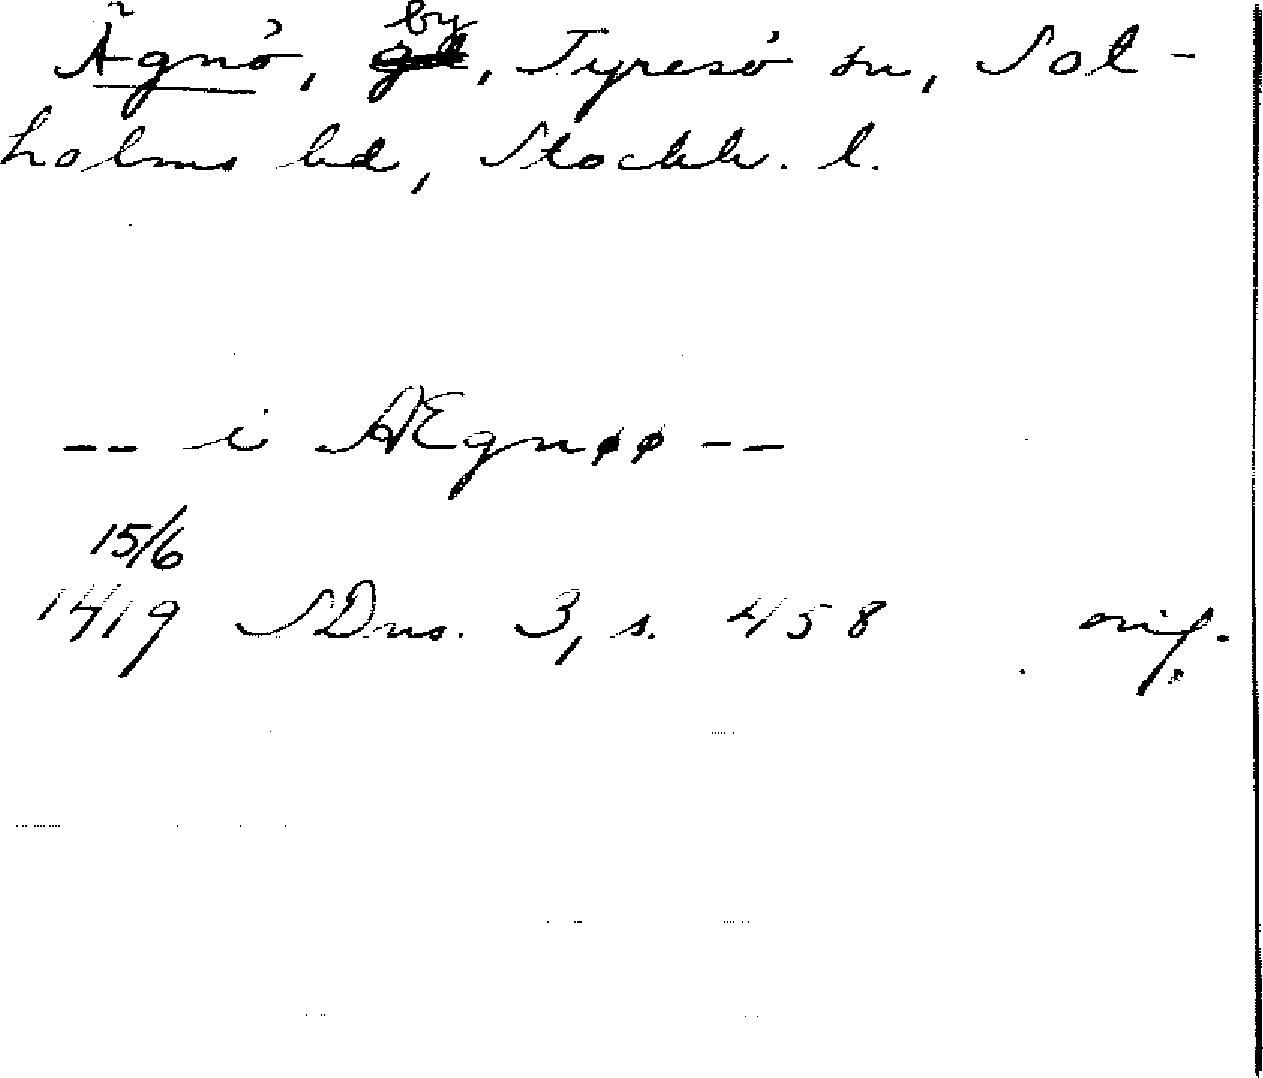 Ägnö, by, Tyresö sn, Sot-
holms hd, Stockh. l.
-- i ÆEgnøø --
15/6
1419 SDns. 3, s. 458 orig.